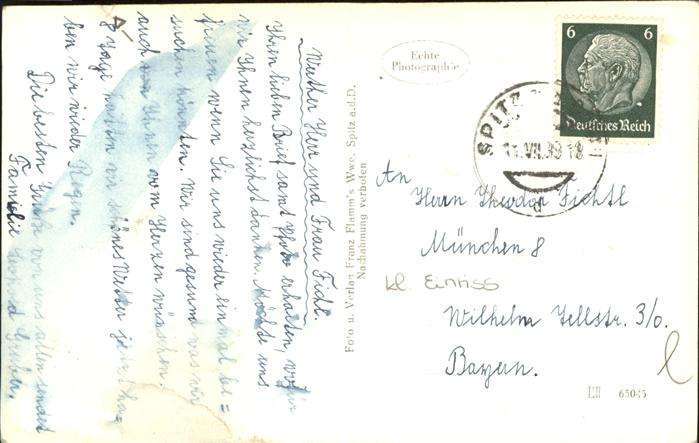 Werther Herr und Frau Fidl.
Ihren lieben Brief samt Photo erhalten, wofür
wir Ihnen herzlichst danken. Möchte uns
freuen wenn Sie uns wieder einmal be=
suchen könnten. Wir sind gesund was wir
auch von Ihnen vom Herzen wünschen.
8 Tage hatten wir schönes Wetter jetzt ha=
ben wir wieder Regen.
Die besten Grüße von uns allen sendet
Familie
Echte
Photographie
Foto u. Verlag Franz Flamm's Wwe. Spitz a.d.D.
Nachahmung verboten
6 6
Deutsches Reich
SPITZ
11.VII.39 18
d
An
Herrn Theodor Fichtl
München 8
kl. Einriss
Wilhelm Tellstr. 3/0.
Bayern.
65045